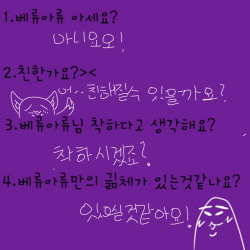 1.베류아류 아세요?
아니요오!
2.친한가요?><
어..친해질수 있을까요?
3.베류아류님 착하다고 생각해요?
착하시겠죠?
4.베류아류만의 긂체가 있는것같나요?
있으실것같아요!